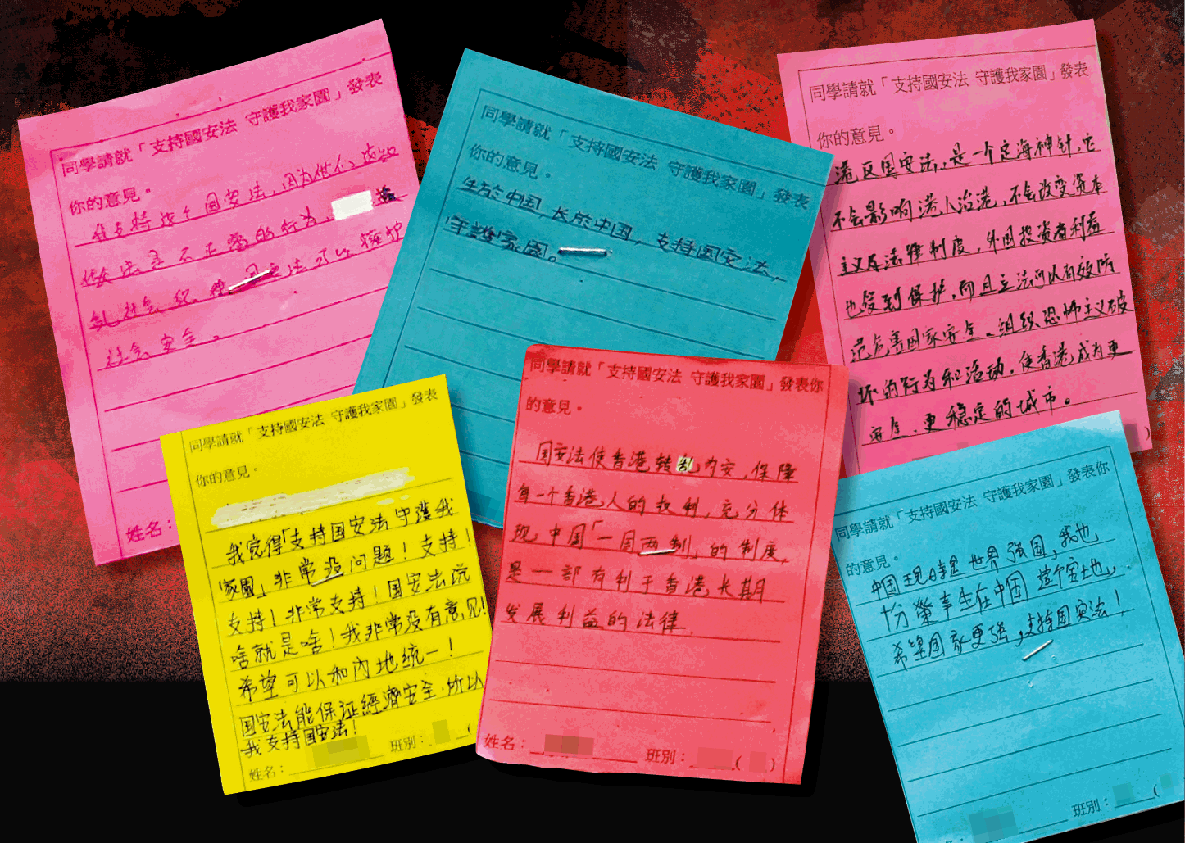 同學請就「支持國安法 守護我家園」發表
你的意見。
社会安全。
姓名:
同學請就「支持國安法 守護我家園」發表
你的意見。
生於中国,长於中国,支持国安法,
守護家園。
同學請就「支持國安法 守護我家園」發表
你的意見。
港区国安法,是一个定海神针,它
不会影响港人治港,不会改变资本
主义及法律制度,外国投资者利益
也受到保护。而且立法可以有效防
范危害国家安全、组织恐怖主义破
坏的行为和活动。使香港成为更
安全、更稳定的城市。
同學請就「支持國安法 守護我家園」發表
你的意見。
我觉得「支持国安法 守護我
家園」非常沒问题!支持!
支持!非常支持!国安法说
啥就是啥!我非常没有意见!
希望可以和内地统一!
国安法能保证經濟安全,所以
我支持国安法!
姓名:
班別: ( )
同學請就「支持國安法 守護我家園」發表你
的意見。
国安法使香港转乱内安,保障
每一个香港人的权利,充分体
现中国「一国两制」的制度,
是一部有利于香港长期
发展利益的法律
姓名:
班別: ( )
同學請就「支持國安法 守護我家園」發表你
的意見。
中国现時是世界强国,我也
十分榮幸生在中国這个宝地,
希望国家更强,支持国安法!
班別: (